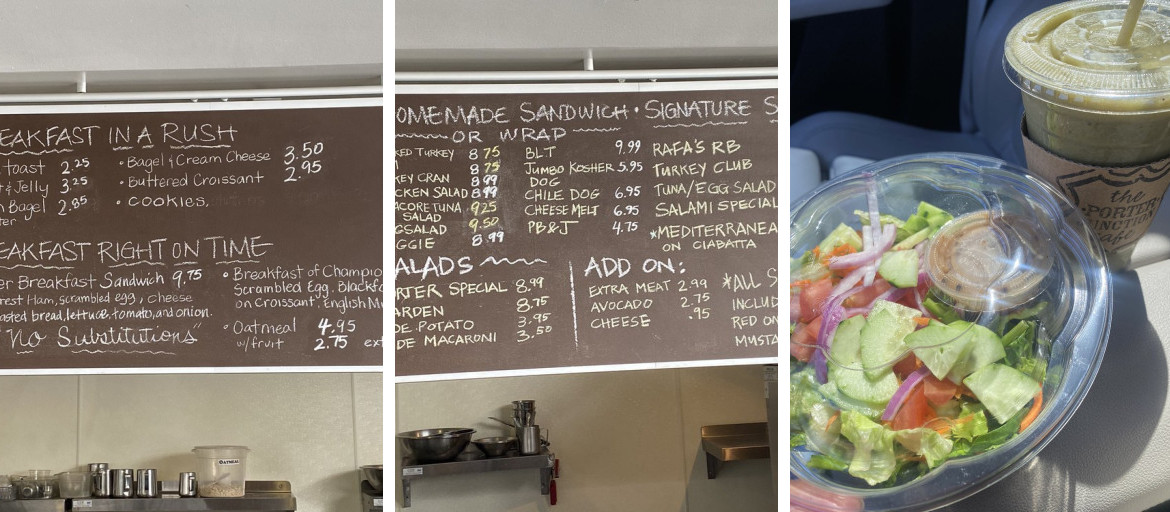 EAKFAST IN A RUSH
toast 2.25
& Jelly 3.25
Bagel 2.85
• Bagel & Cream Cheese 3.50
• Buttered Croissant 2.95
• COOKIES.
EAKFAST RIGHT ON TIME
er Breakfast Sandwich 9.75
rest Ham, scrambled egg, cheese
asted bread, lettuce, tomato, and onion.
"No Substitutions"
• Breakfast of Champio
Scrambled Egg, Blackfo
on Croissant, English Mu
• Oatmeal 4.95
w/fruit 2.75 ext
OATMEAL
OMEMADE SANDWICH • SIGNATURE S
OR WRAP
KED TURKEY 8.75
8.75
KEY CRAN 8.99
CKEN SALAD 8.99
ACORE TUNA 9.25
SALAD
GSALAD 9.50
GGIE 8.99
BLT 9.99
JUMBO KOSHER 5.95
DOG
CHILE DOG 6.95
CHEESE MELT 6.95
PB&J 4.75
RAFA'S RB
TURKEY CLUB
TUNA/EGG SALAD
SALAMI SPECIAL
*MEDITERRANEA
ON CIABATTA
ALADS
RTER SPECIAL 8.99
ARDEN 8.75
DE POTATO 3.95
DE MACARONI 3.50
ADD ON:
EXTRA MEAT 2.99
AVOCADO 2.75
CHEESE .95
*ALL S
INCLUD
RED ON
MUSTA
the
PORTER
JUNCTION
Cafe